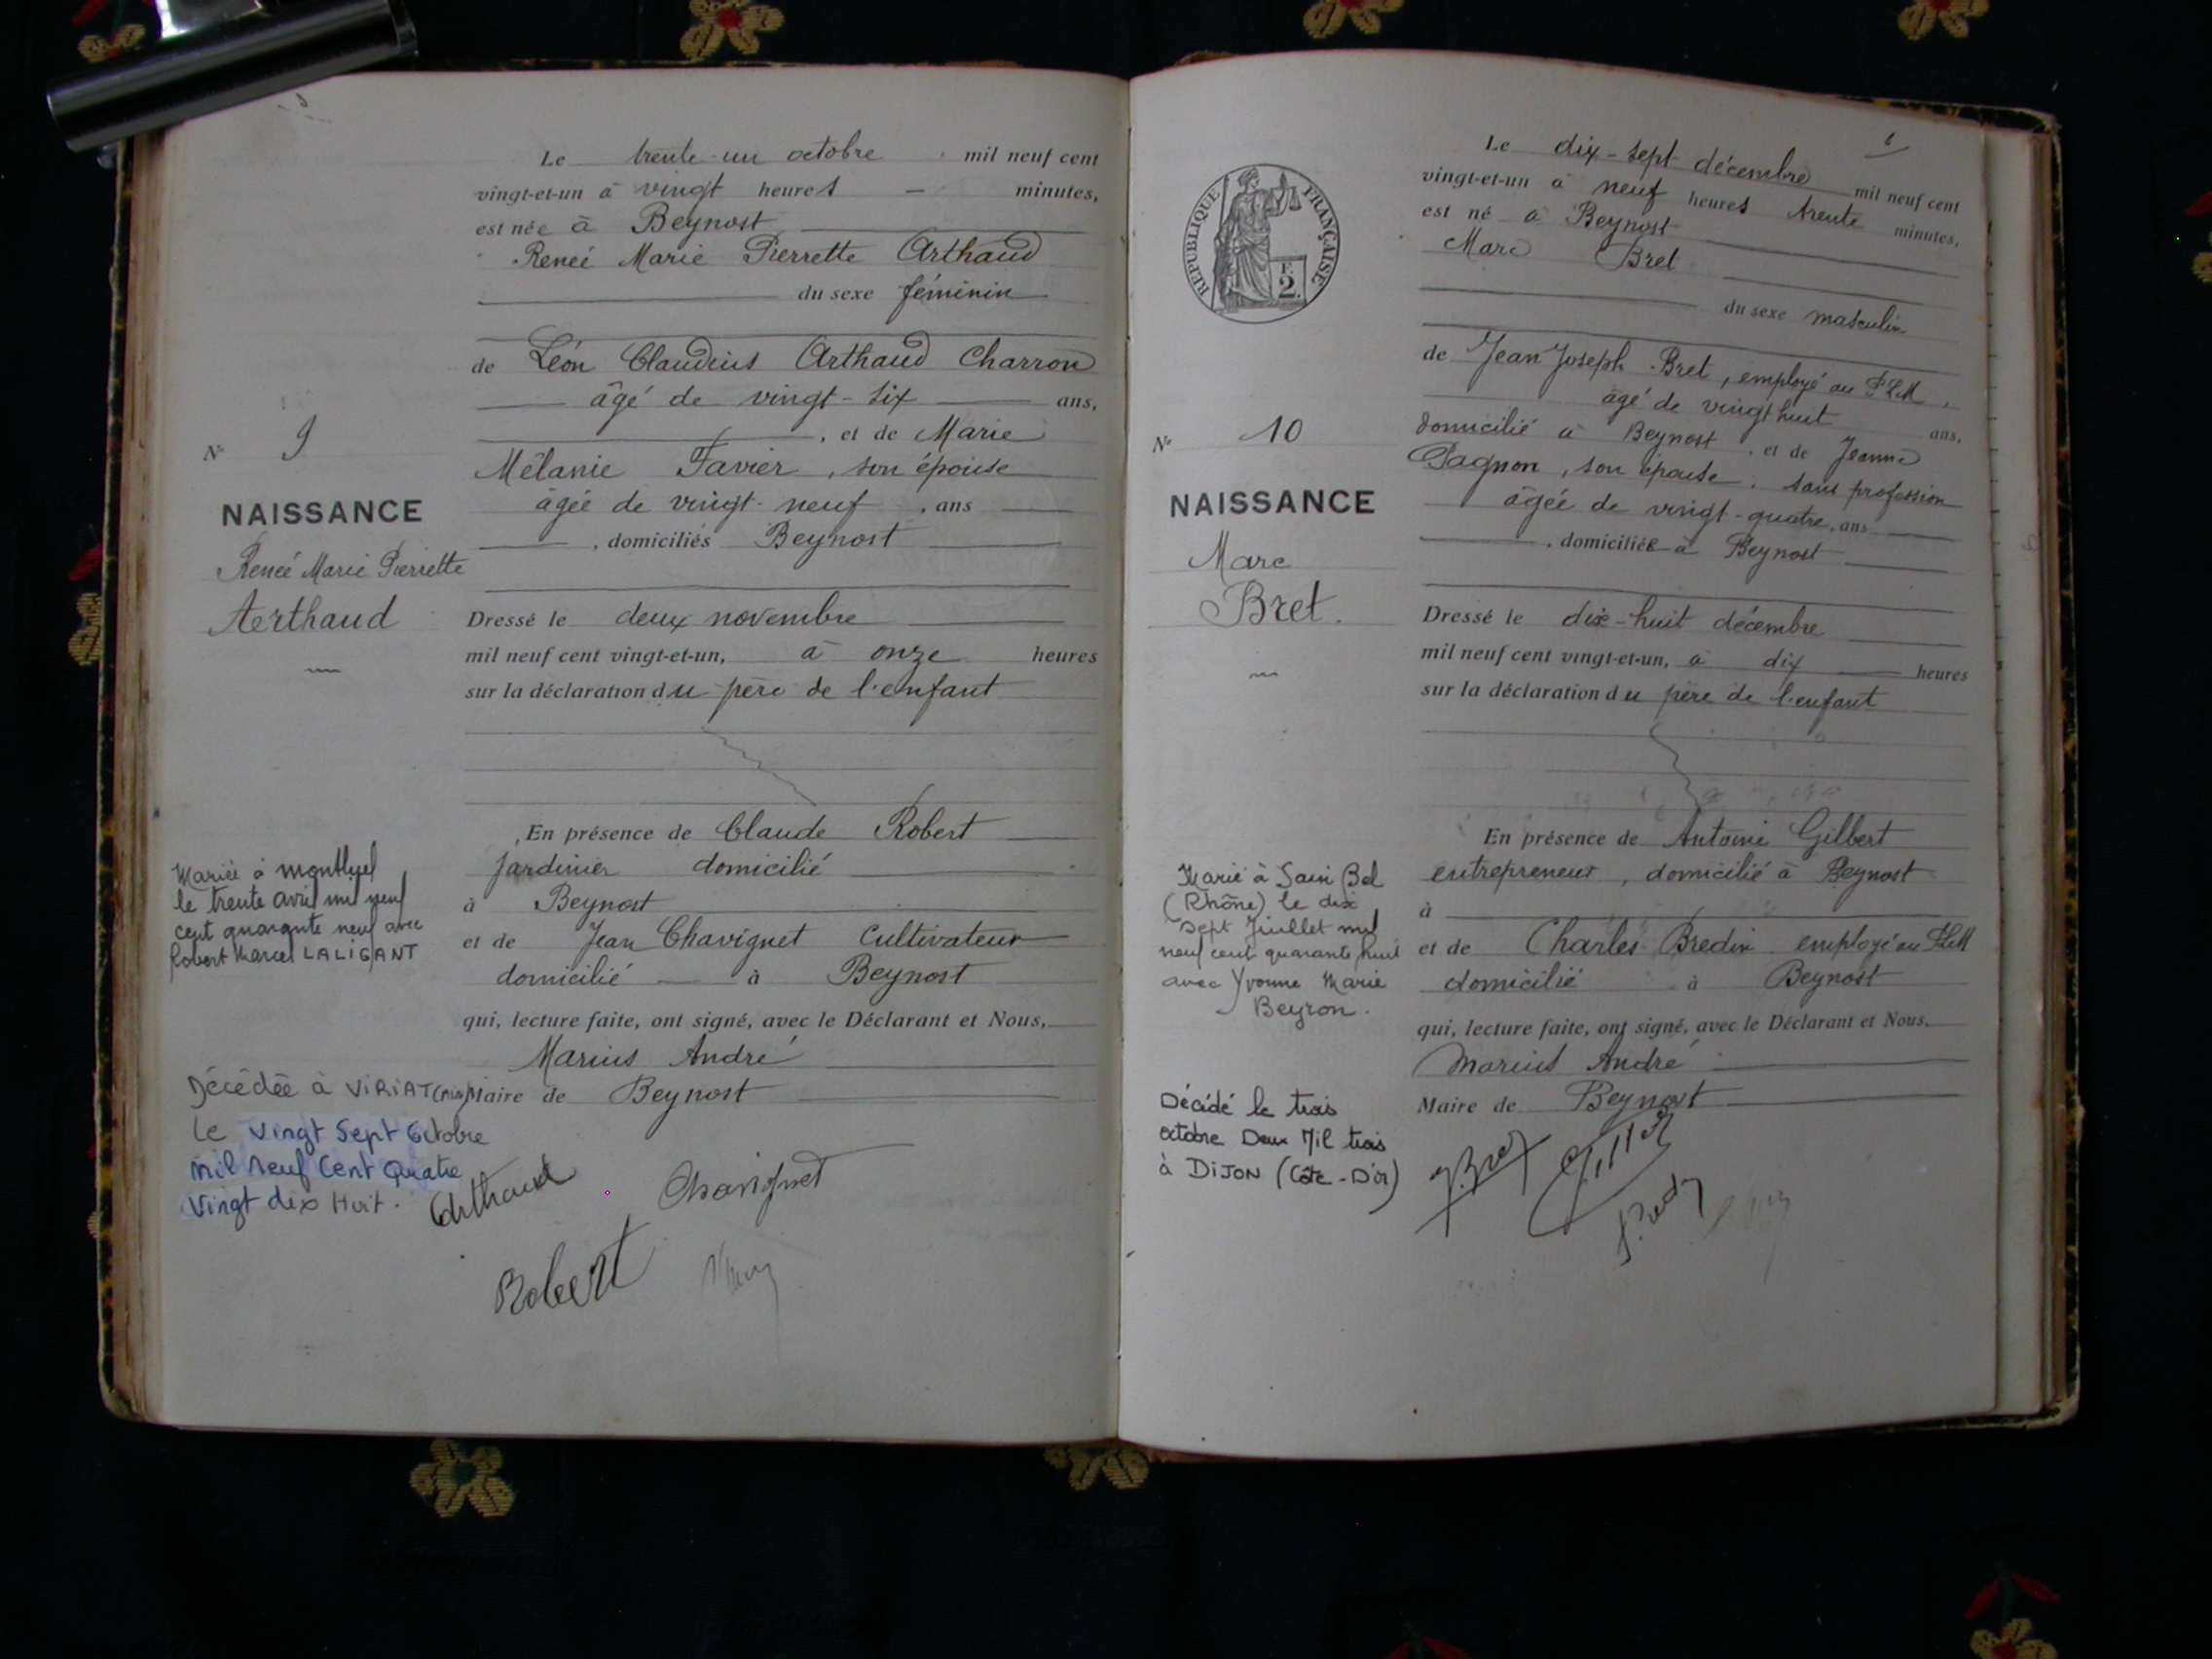 Le trente-un octobre mil neuf cent
vingt-et-un à vingt heures — minutes,
est née à Beynost
Renée Marie Pierrette Arthaud
du sexe féminin
de Léon Claudius Arthaud Charron
âgé de vingt-six ans,
, et de Marie
Mélanie Favier, son épouse
âgée de vingt-neuf, ans
, domiciliés Beynost
N° 9
NAISSANCE
Renée Marie Pierrette
Aerthaud
Dressé le deux novembre
mil neuf cent vingt-et-un, à onze heures
sur la déclaration du père de l'enfant
En présence de Claude Robert
jardinier domicilié
à Beynost
et de Jean Chavignet cultivateur
domicilié — à Beynost
qui, lecture faite, ont signé, avec le Déclarant et Nous,
Marius André
Maire de Beynost
Mariée à Montluel
le trente avril mil neuf
cent quarante neuf avec
Robert Marcel LALIGANT
Décédée à VIRIAT (Ain)
Le Vingt Sept Octobre
Mil Neuf Cent Quatre
Vingt dix Huit.
Arthaud
Chavignet
Robert
REPUBLIQUE FRANÇAISE
F.
2.
Le dix-sept décembre mil neuf cent
vingt-et-un à neuf heures trente minutes,
est né à Beynost
Marc Bret
du sexe masculin
de Jean Joseph Bret, employé au PLM,
âgé de vingt huit ans,
domicilié à Beynost, et de Jeanne
Pagnon, son épouse, sans profession
âgée de vingt-quatre, ans
, domiciliée à Beynost
N° 10
NAISSANCE
Marc
Bret.
Dressé le dix-huit décembre
mil neuf cent vingt-et-un, à dix heures
sur la déclaration du père de l'enfant
En présence de Antoine Gilbert
entrepreneur, domicilié à Beynost
à
et de Charles Bredin employé au PLM
domicilié à Beynost
qui, lecture faite, ont signé, avec le Déclarant et Nous,
Marius André
Maire de Beynost
Marié à Sain Bel
(Rhône) le dix
sept Juillet mil
neuf cent quarante huit
avec Yvonne Marie
Beyron.
Décédé le trois
octobre Deux Mil trois
à DIJON (Côte-D'or)
J. Bret